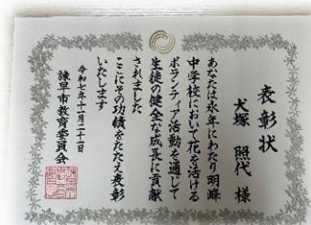 表彰状
犬塚 照代 様
あなたは永年にわたり明峰
中学校において花を活ける
ボランティア活動を通して
生徒の健全な成長に貢献
されました
ここにその功績をたたえ表彰
いたします
令和七年十一月二十一日
諫早市教育委員会